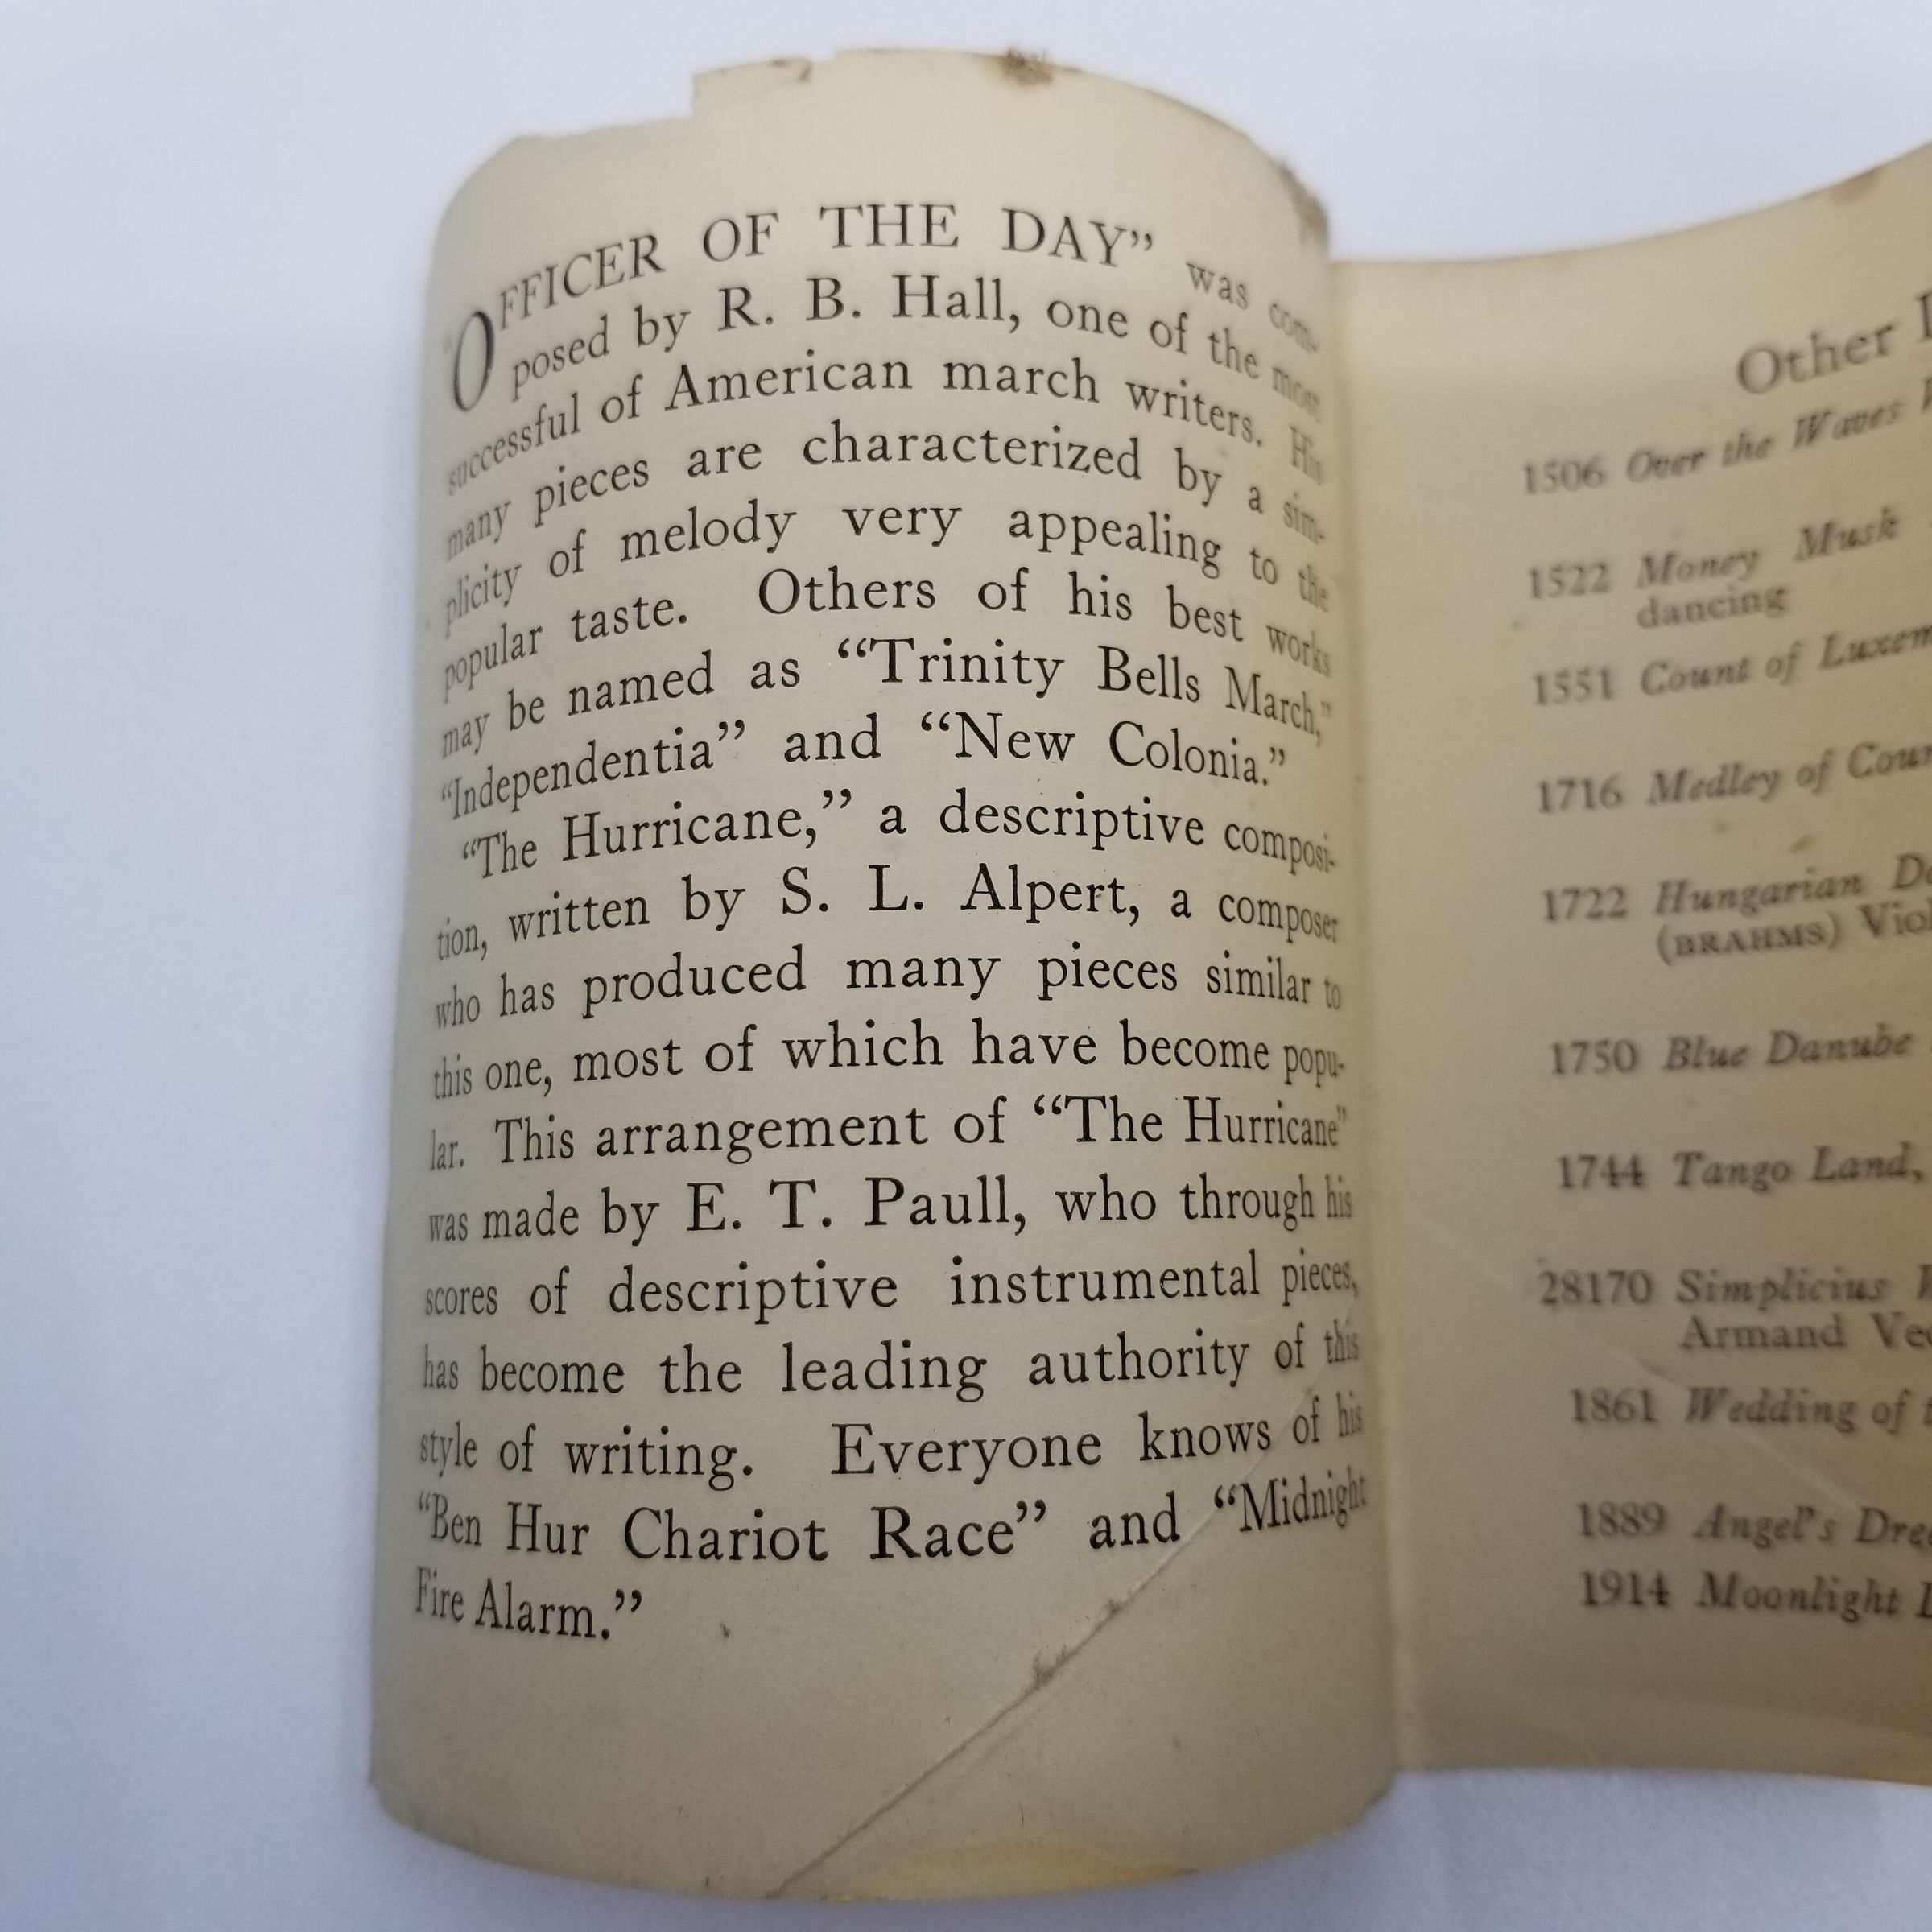 "OFFICER OF THE DAY" was com-
posed by R. B. Hall, one of the most
successful of American march writers. His
many pieces are characterized by a sim-
plicity of melody very appealing to the
popular taste. Others of his best works
may be named as "Trinity Bells March,"
"Independentia" and "New Colonia."
"The Hurricane," a descriptive composi-
tion, written by S. L. Alpert, a composer
who has produced many pieces similar to
this one, most of which have become popu-
lar. This arrangement of "The Hurricane"
was made by E. T. Paull, who through his
scores of descriptive instrumental pieces,
has become the leading authority of this
style of writing. Everyone knows of his
"Ben Hur Chariot Race" and "Midnight
Fire Alarm."
Other
1506 Over the Waves
1522 Money Musk
dancing
1551 Count of
1716 Medley of
1722 Hungarian
(BRAHMS)
1750 Blue Danube
1744 Tango Land,
28170 Simplicius
Armand
1861 Wedding of
1889 Angel's
1914 Moonlight